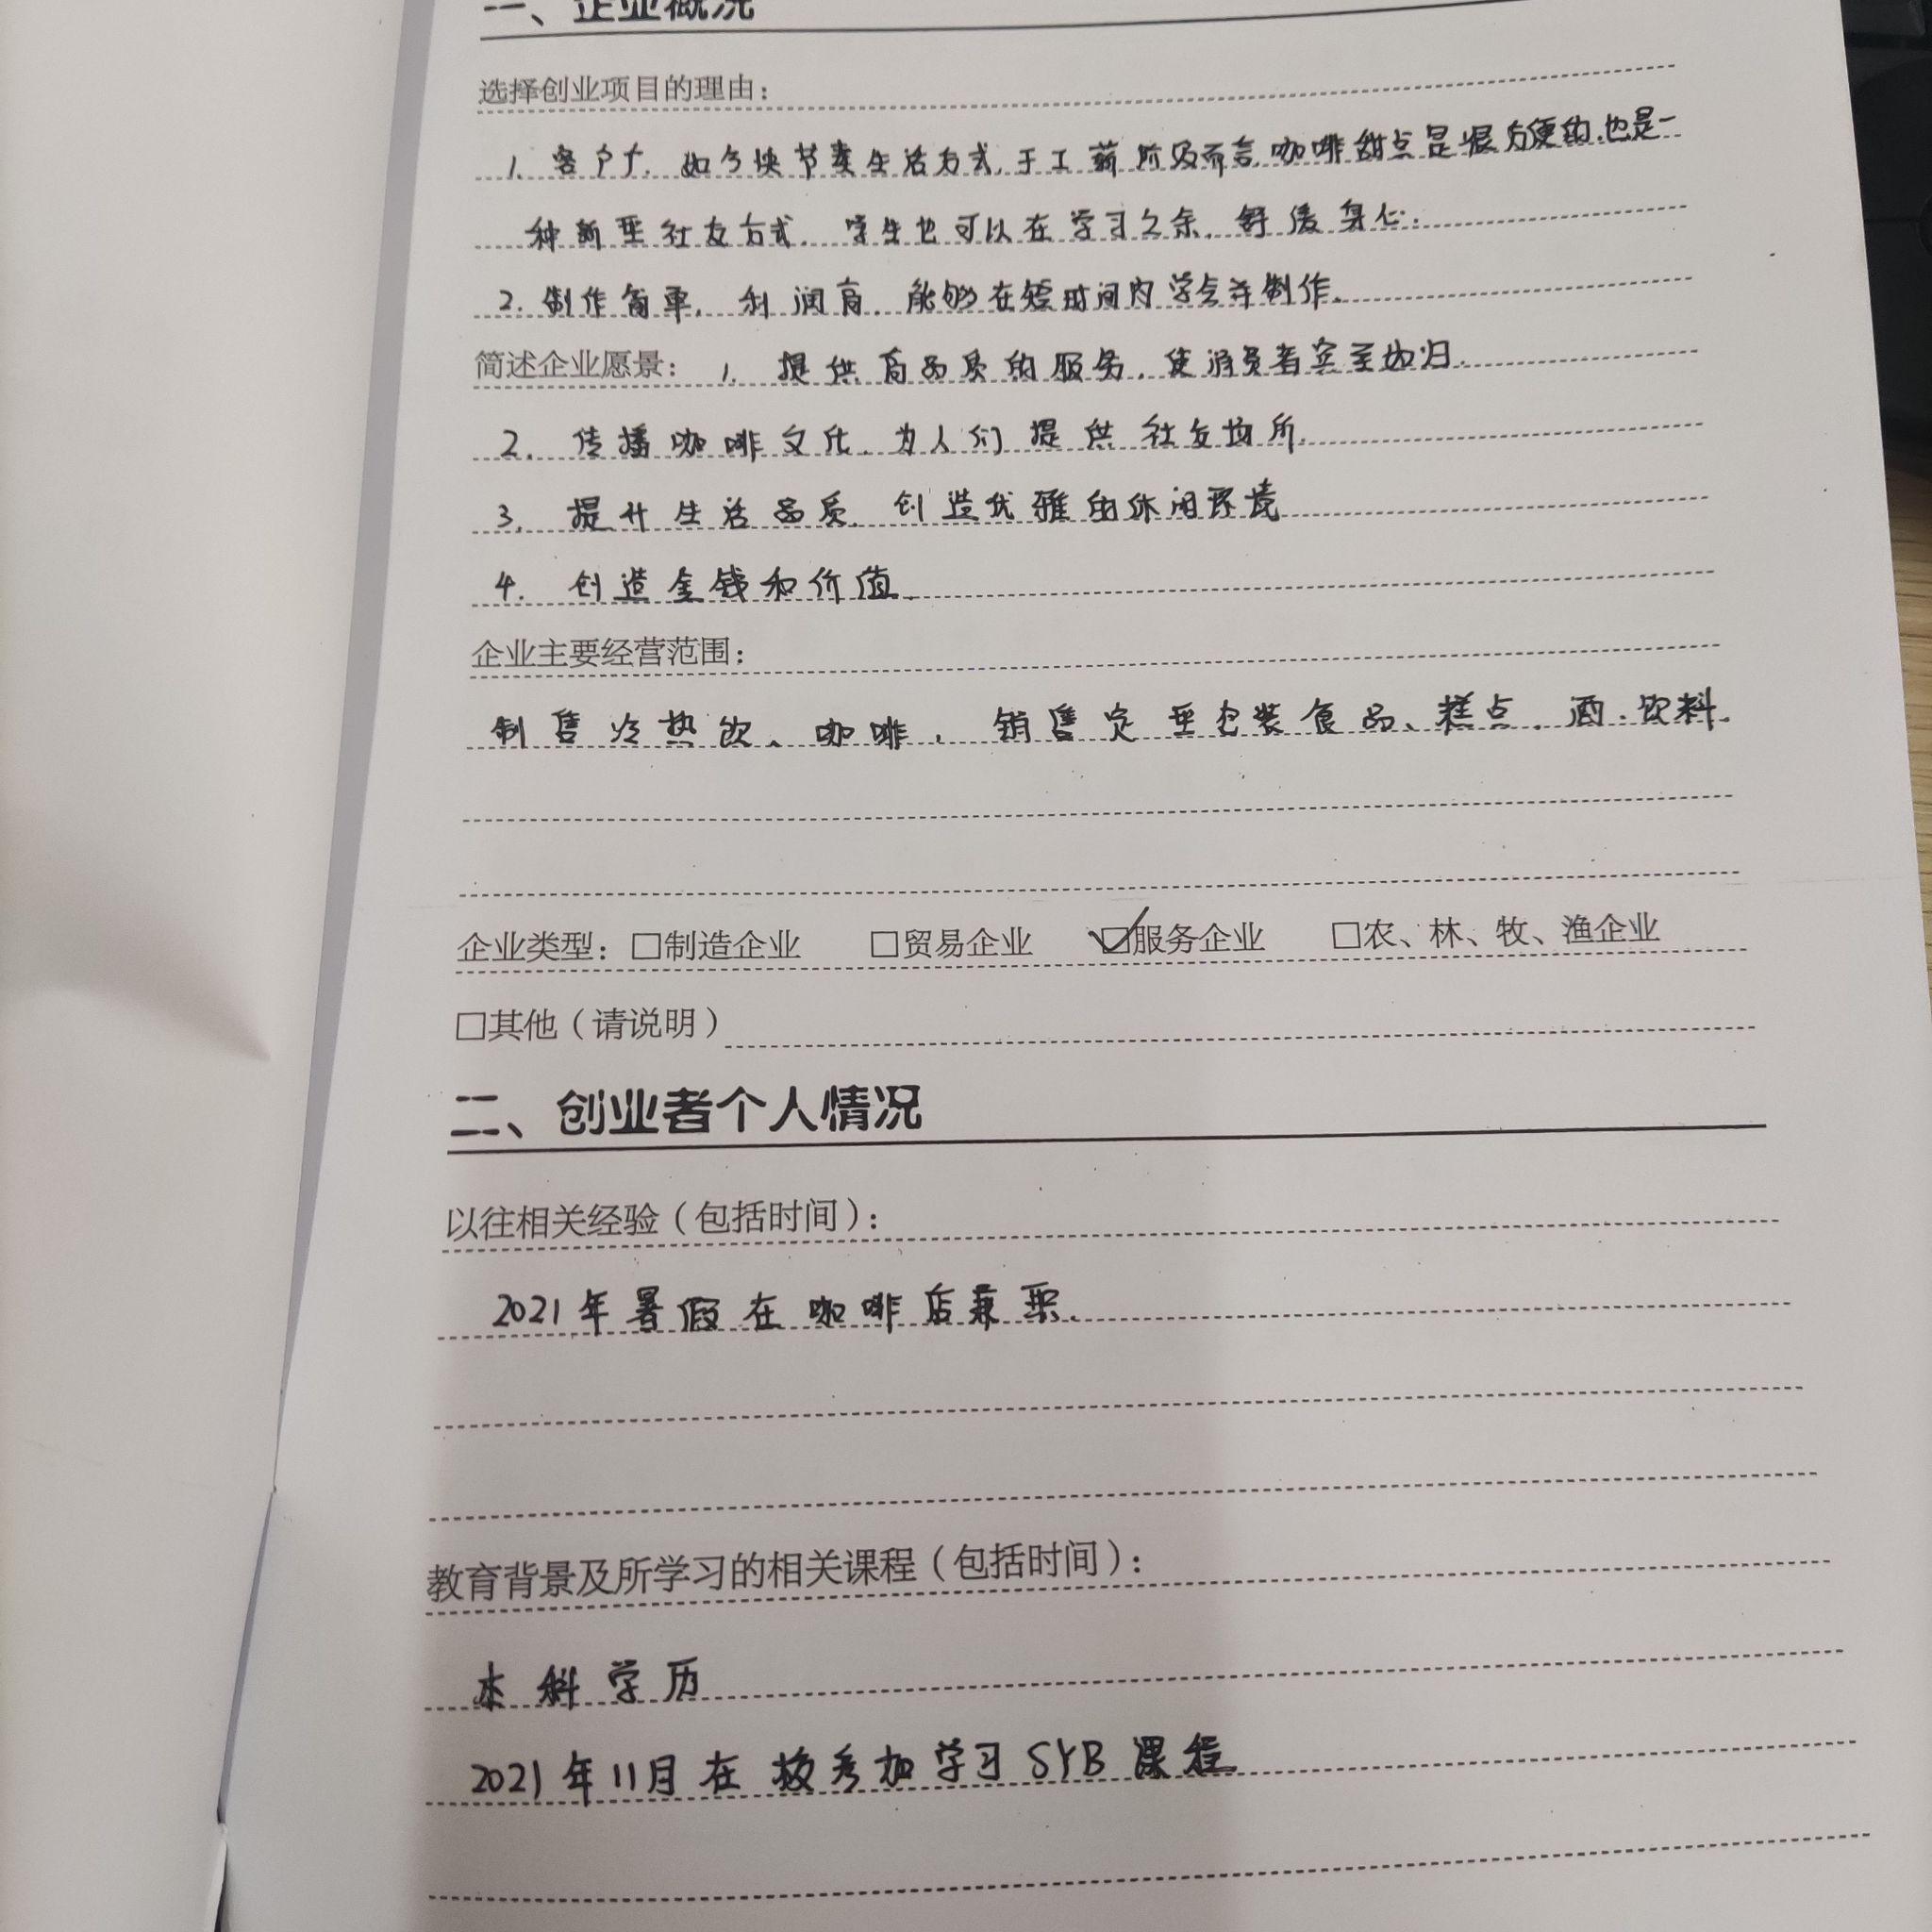 一、企业概况
选择创业项目的理由：
1. 客户广，如今快节奏生活方式，于工薪阶级而言，咖啡甜点是很方便的，也是一
种新型社交方式，学生也可以在学习之余，舒缓身心.
2. 制作简单，利润高，能够在短时间内学会并制作.
简述企业愿景： 1. 提供高品质的服务，使消费者宾至如归.
2. 传播咖啡文化，为人们提供社交场所.
3. 提升生活品质，创造优雅的休闲环境
4. 创造金钱和价值.
企业主要经营范围：
制售冷热饮、咖啡，销售定型包装食品、糕点、酒、饮料.
企业类型：□制造企业 □贸易企业 ☑服务企业 □农、林、牧、渔企业
□其他（请说明）
二、创业者个人情况
以往相关经验（包括时间）：
2021年暑假在咖啡店兼职.
教育背景及所学习的相关课程（包括时间）：
本科学历
2021年11月在校参加学习SYB课程.